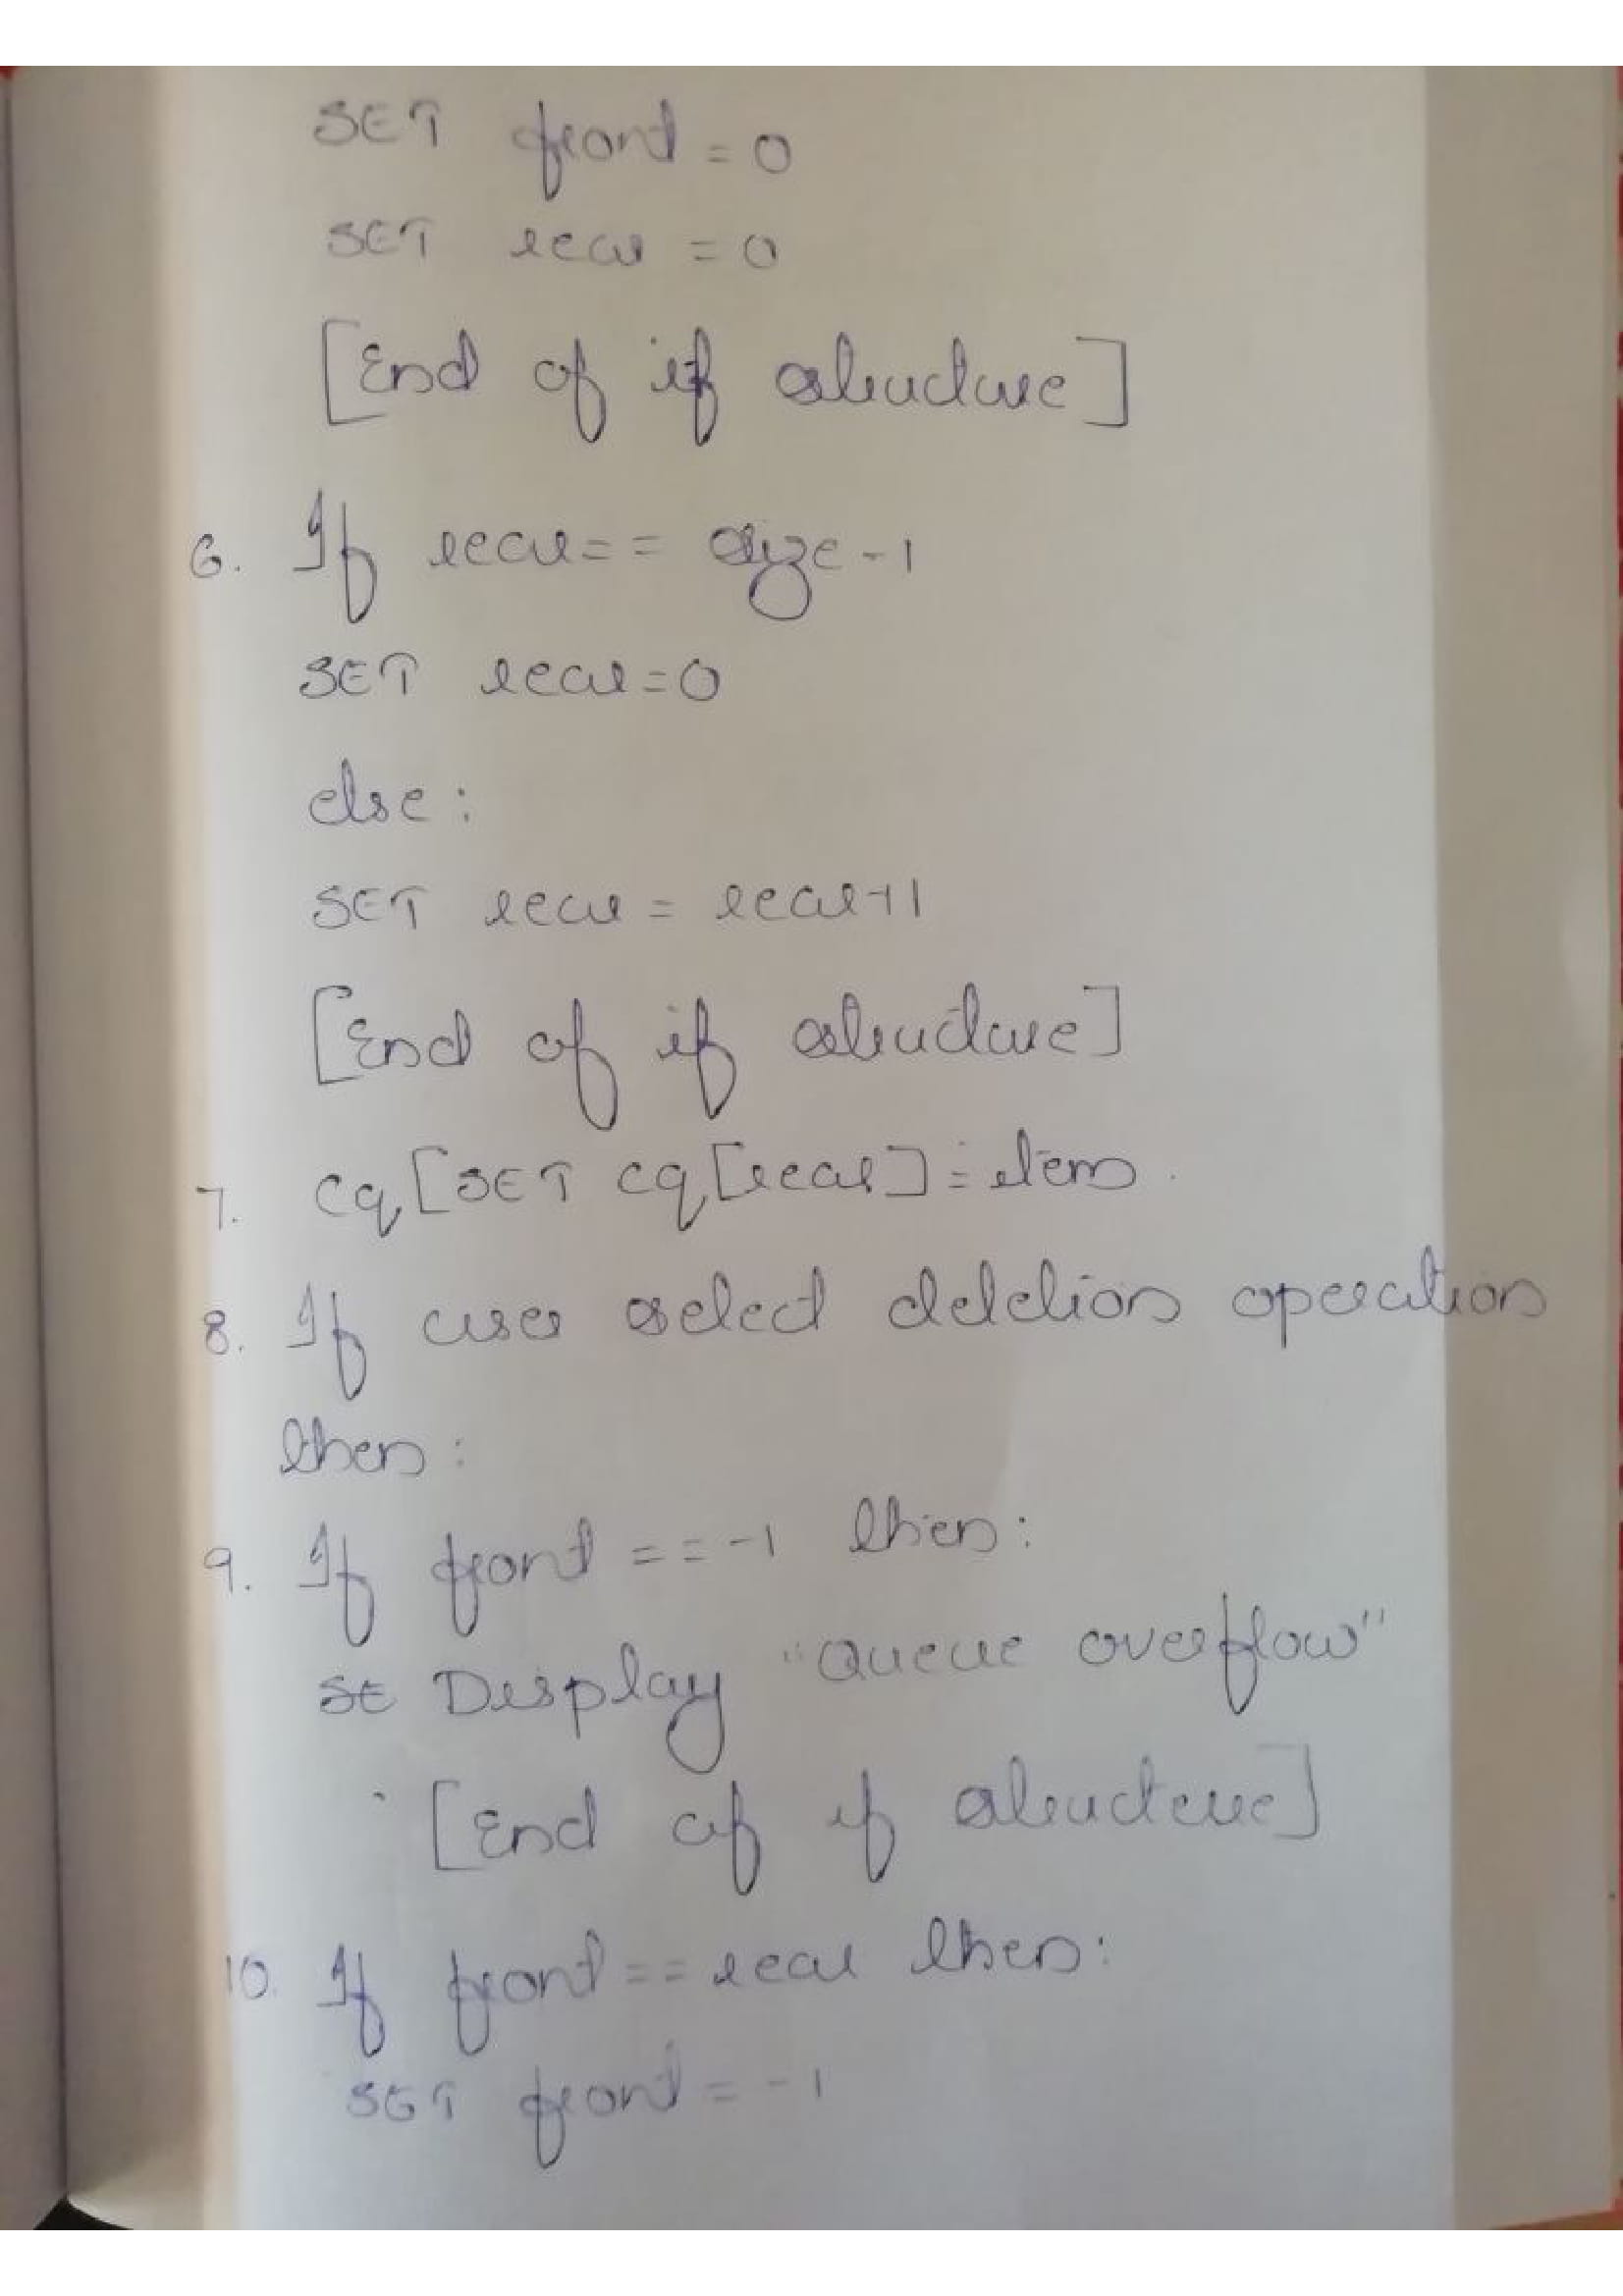 SET front = 0
SET rear = 0
[End of if structure]
6. If rear == size - 1
SET rear = 0
else :
SET rear = rear+1
[End of if structure]
7. cq[SET cq[rear] = item.
8. If user select deletion operation
then :
9. If front == -1 then :
SE Display "Queue overflow"
[End of if structure]
10. If front == rear then :
SET front = -1